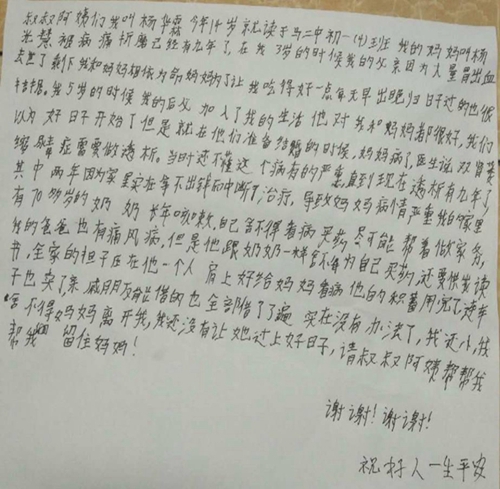 叔叔阿姨们我叫杨华霖 今年14岁就读于马二中初一(4)班 我的妈妈叫杨
光慧被病痛折磨已经有九年了,在我3岁的时候我的父亲因为大量胃出血
去世了剩下我和妈妈相依为命妈妈为了让我吃得好一点每天早出晚归日子过的也很
拮据。我5岁的时候我的后父加入了我的生活他对我和妈妈都很好,我们
以为好日子开始了但是就在他们准备结婚的时候,妈妈病了医生说双肾萎
缩尿毒症需要做透析。当时还不懂这个病有的严重,直到现在透析有九年了,
其中两年因为家里实在拿不出钱而中断了治疗,导致妈妈病情严重我的家里
有70多岁的奶奶长年咳嗽,自己舍不得看病买药尽可能帮着做家务,
我的爸爸也有痛风病,但是他跟奶奶一样舍不得为自己买药,还要供我读
书,全家的担子压在他一个人肩上好给妈妈看病他的积蓄用完了,连车
子也卖了,亲戚朋友能借的也全部借了遍 实在没有办法了,我还小,我
舍不得妈妈离开我,我还没有让她过上好日子,请叔叔阿姨帮帮我
帮我 留住妈妈!
谢谢!谢谢!
祝好人一生平安